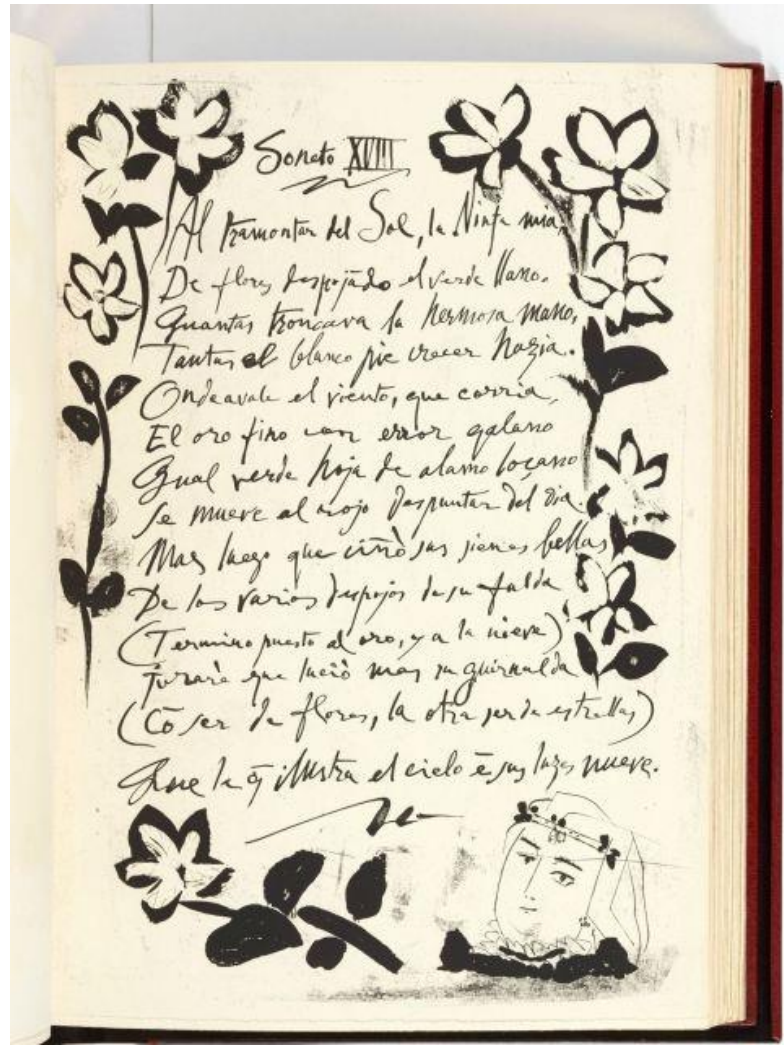 Soneto XVIII
Al tramontar del Sol, la Ninfa mia,
De flores despojãdo el verde llano.
Quantas troncava la hermosa mano,
Tantas el blanco pie crecer hazia.
Ondeavale el viento, que corria,
El oro fino con error galano
Qual verde hoja de alamo loçano
Se mueve al rojo despuntar del dia.
Mas luego que ciñò sus sienes bellas
De los varios despojos de su falda
(Termino puesto al oro, y a la nieve)
Jurarè que luciò mas su guirnalda
(Cõ ser de flores, la otra ser de estrellas)
Que la q̃ illustra el cielo ẽ sus luzes nueve.